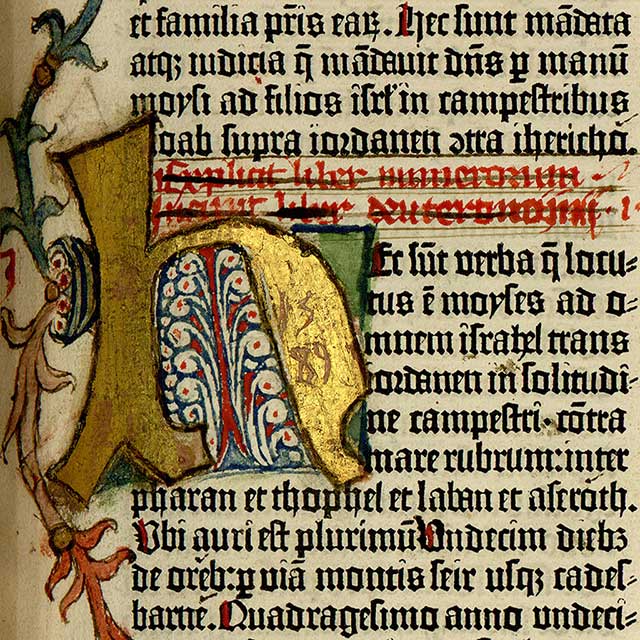 et familia pr̄is eaꝝ. Hec sunt mādata
atqꝫ iudicia q̄ mādauit dn̄s ꝑ manū
moysi ad filios iſrl̄ in campeſtribus
moab ſupra iordanen ꝯtra ihericho.
Explicit liber numerorum
Incipit liber deuteronomii
Ec sūt verba q̄ locu⸗
tus ē moyſes ad o⸗
mnem iſrahel trans
iordanen in ſolitudi⸗
ne campeſtri· cōtra
mare rubrum: inter
pharan et thophel et laban et aſeroth.
Vbi auri eſt plurimū Undecim diebꝫ
de oreb: ꝑ viā montis ſeir uſqꝫ cades⸗
barne. Quadrageſimo anno undeci⸗
1589